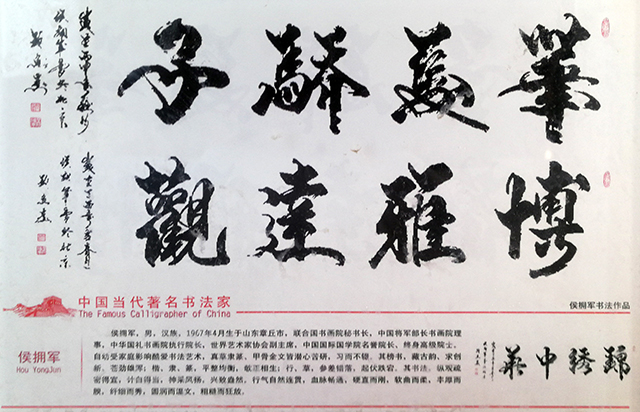 華夏驕子
博雅達觀
中国当代著名书法家
The Famous Calligrapher of China
侯拥军书法作品
侯拥军
Hou YongJun
侯拥军，男，汉族，1967年4月生于山东章丘市，联合国书画院秘书长，中国将军部长书画院理
事，中华国礼书画院执行院长，世界艺术家协会副主席，中国国际国学院名誉院长、终身高级院士，
自幼受家庭影响酷爱书法艺术，真草隶篆，甲骨金文皆潜心苦研，习而不辍，其榜书，藏古韵，求创
新，苍劲雄浑；楷，隶，篆，平整均衡，敧正相生；行，草，参差错落，起伏跌宕，其书法，纵观疏
密得宜，计白得当，神采风扬，兴致盎然，行气自然连贯，血脉畅通，硬直而刚，软曲而柔，丰厚而
腴，纤细而秀，圆润而温文，粗糙而狂放。
錦綉中華